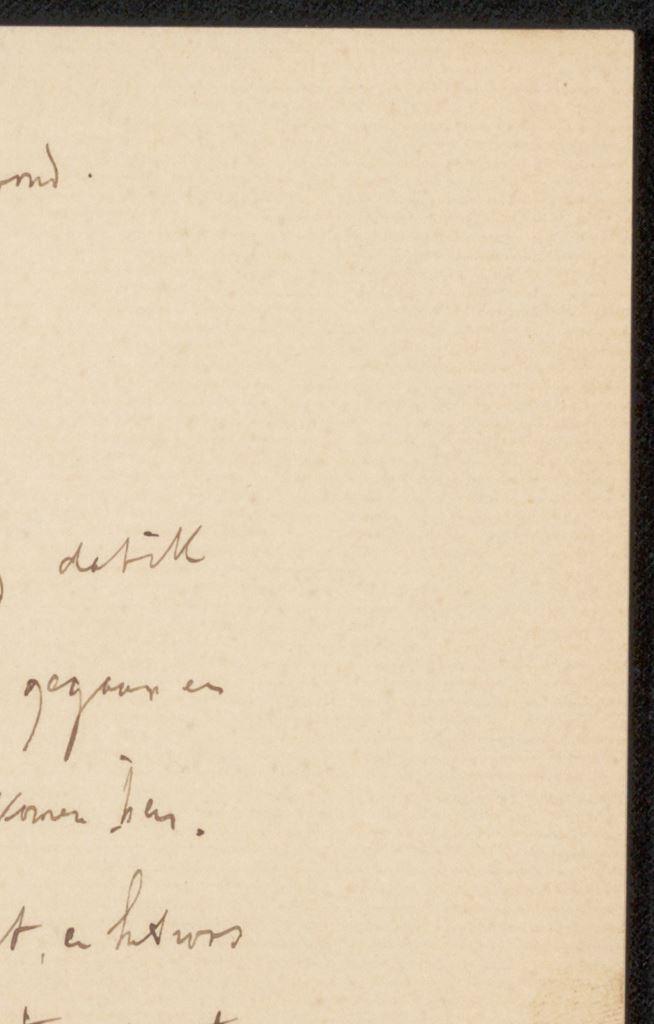 dat ik
gegaan en
komen ben.
t, en het was